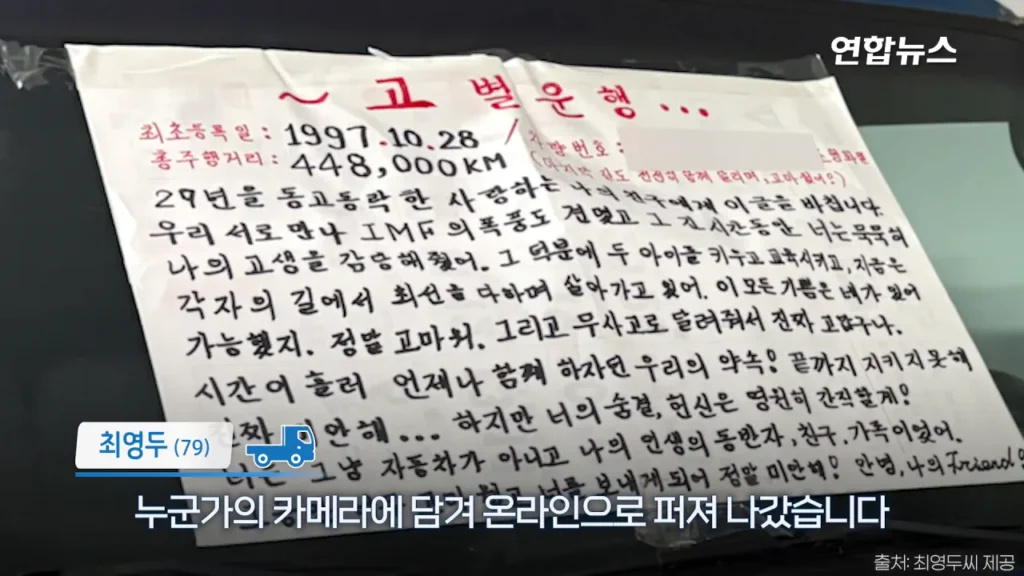 연합뉴스
~ 고별운행...
최초등록일: 1997.10.28 / 차량번호:
총주행거리: 448,000KM (마지막 길도 건강하게 달리며, 고마웠어?)
29년을 동고동락한 사랑하는 나의 친구에게 이 글을 바칩니다.
우리 서로 만나 IMF의 폭풍도 견뎠고 그 긴 시간동안 너는 묵묵히
나의 고생을 감당해줬어. 그 덕분에 두 아이를 키우고 교육시키고, 지금은
각자의 길에서 최선을 다하며 살아가고 있어. 이 모든 기쁨은 네가 있어
가능했지. 정말 고마워. 그리고 무사고로 달려줘서 진짜 고맙구나.
시간이 흘러 언제나 함께 하자던 우리의 약속! 끝까지 지키지 못해
진짜 미안해... 하지만 너의 숨결, 헌신은 영원히 간직할게!
너는 그냥 자동차가 아니고 나의 인생의 동반자, 친구, 가족이었어.
너를 보내게 되어 정말 미안해! 안녕, 나의 Friend
최영두 (79)
누군가의 카메라에 담겨 온라인으로 퍼져 나갔습니다
출처: 최영두씨 제공